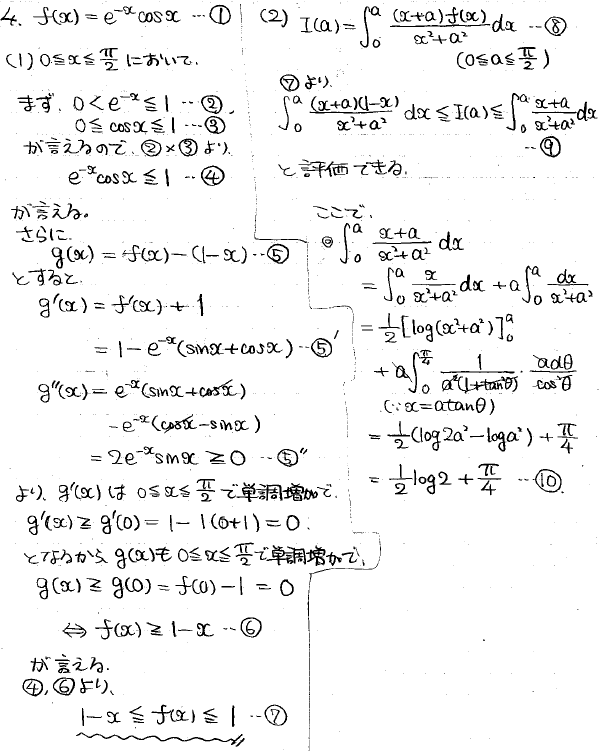 4. f(x) = e^{-x}cosx …①
(1) 0≦x≦π/2 において、
まず、0<e^{-x}≦1 …②,
0≦cosx≦1 …③
が言えるので、②×③より、
e^{-x}cosx≦1 …④
が言える。
さらに、
g(x) = f(x)-(1-x) …⑤
とすると、
g'(x) = f'(x)+1
= 1-e^{-x}(sinx+cosx) …⑤'
g''(x) = e^{-x}(sinx+cosx)
-e^{-x}(cosx-sinx)
= 2e^{-x}sinx ≧ 0 …⑤''
より、g'(x)は 0≦x≦π/2 で単調増加で、
g'(x)≧g'(0) = 1-1(0+1) = 0.
となるから、g(x)も 0≦x≦π/2 で単調増加で、
g(x)≧g(0) = f(0)-1 = 0
⇔ f(x)≧1-x …⑥
が言える.
④,⑥より、
1-x≦f(x)≦1 …⑦
(2) I(a) = ∫_0^a (x+a)f(x)/(x²+a²) dx …⑧
(0≦a≦π/2)
⑦より、
∫_0^a (x+a)(1-x)/(x²+a²) dx ≦ I(a) ≦ ∫_0^a (x+a)/(x²+a²) dx
…⑨
と評価できる.
ここで、
◎ ∫_0^a (x+a)/(x²+a²) dx
= ∫_0^a x/(x²+a²) dx + a∫_0^a dx/(x²+a²)
= 1/2 [log(x²+a²)]_0^a
+ a∫_0^{π/4} 1/(a²(1+tan²θ)) · adθ/cos²θ
(∵x=atanθ)
= 1/2 (log2a²-loga²) + π/4
= 1/2 log2 + π/4 …⑩